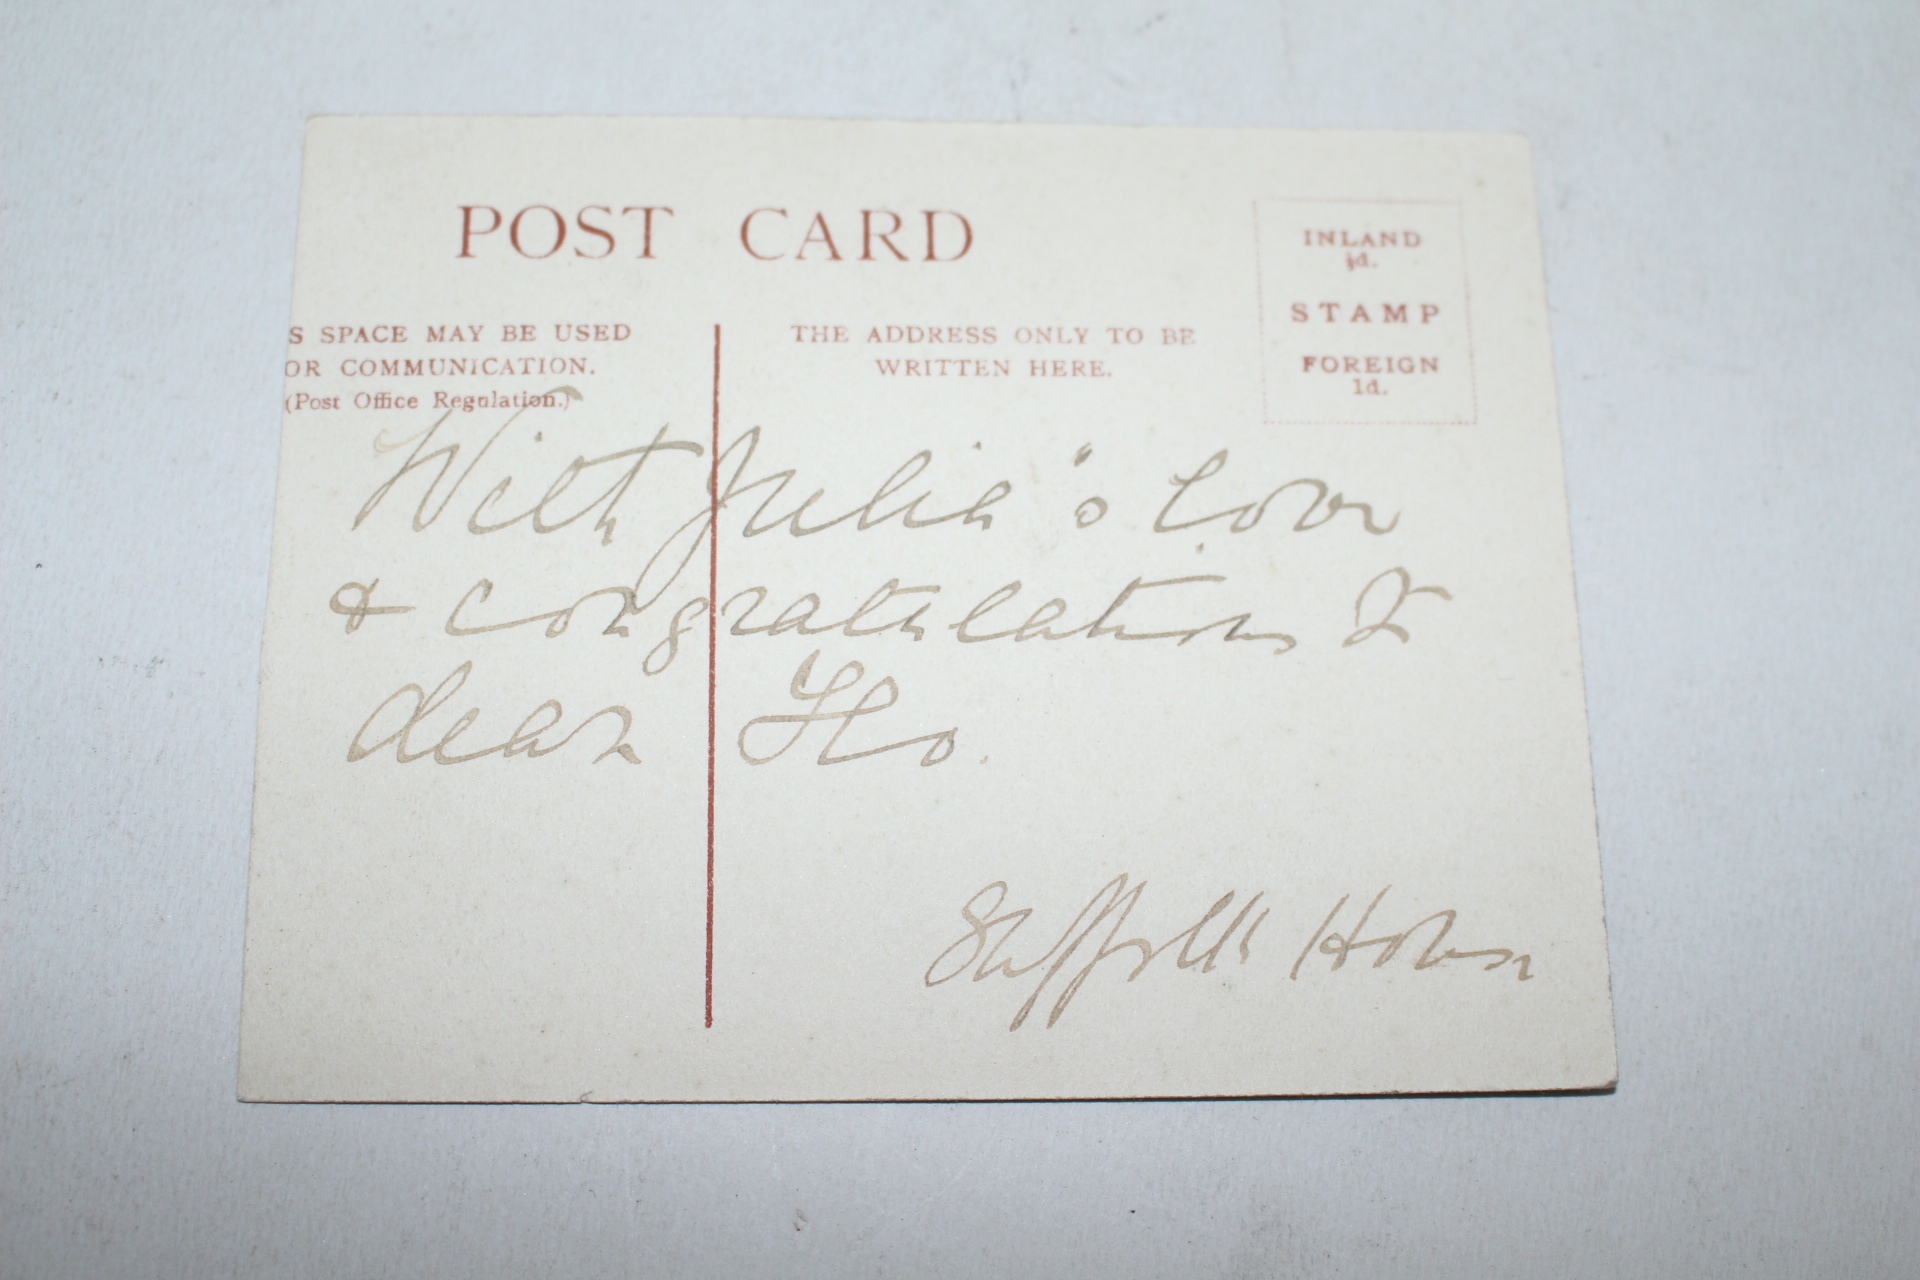 POST CARD
INLAND
½d.
STAMP
FOREIGN
1d.
S SPACE MAY BE USED
OR COMMUNICATION.
(Post Office Regulation.)
THE ADDRESS ONLY TO BE
WRITTEN HERE.
With Julia's love
& congratulations to
dear Flo.
Suffolk House